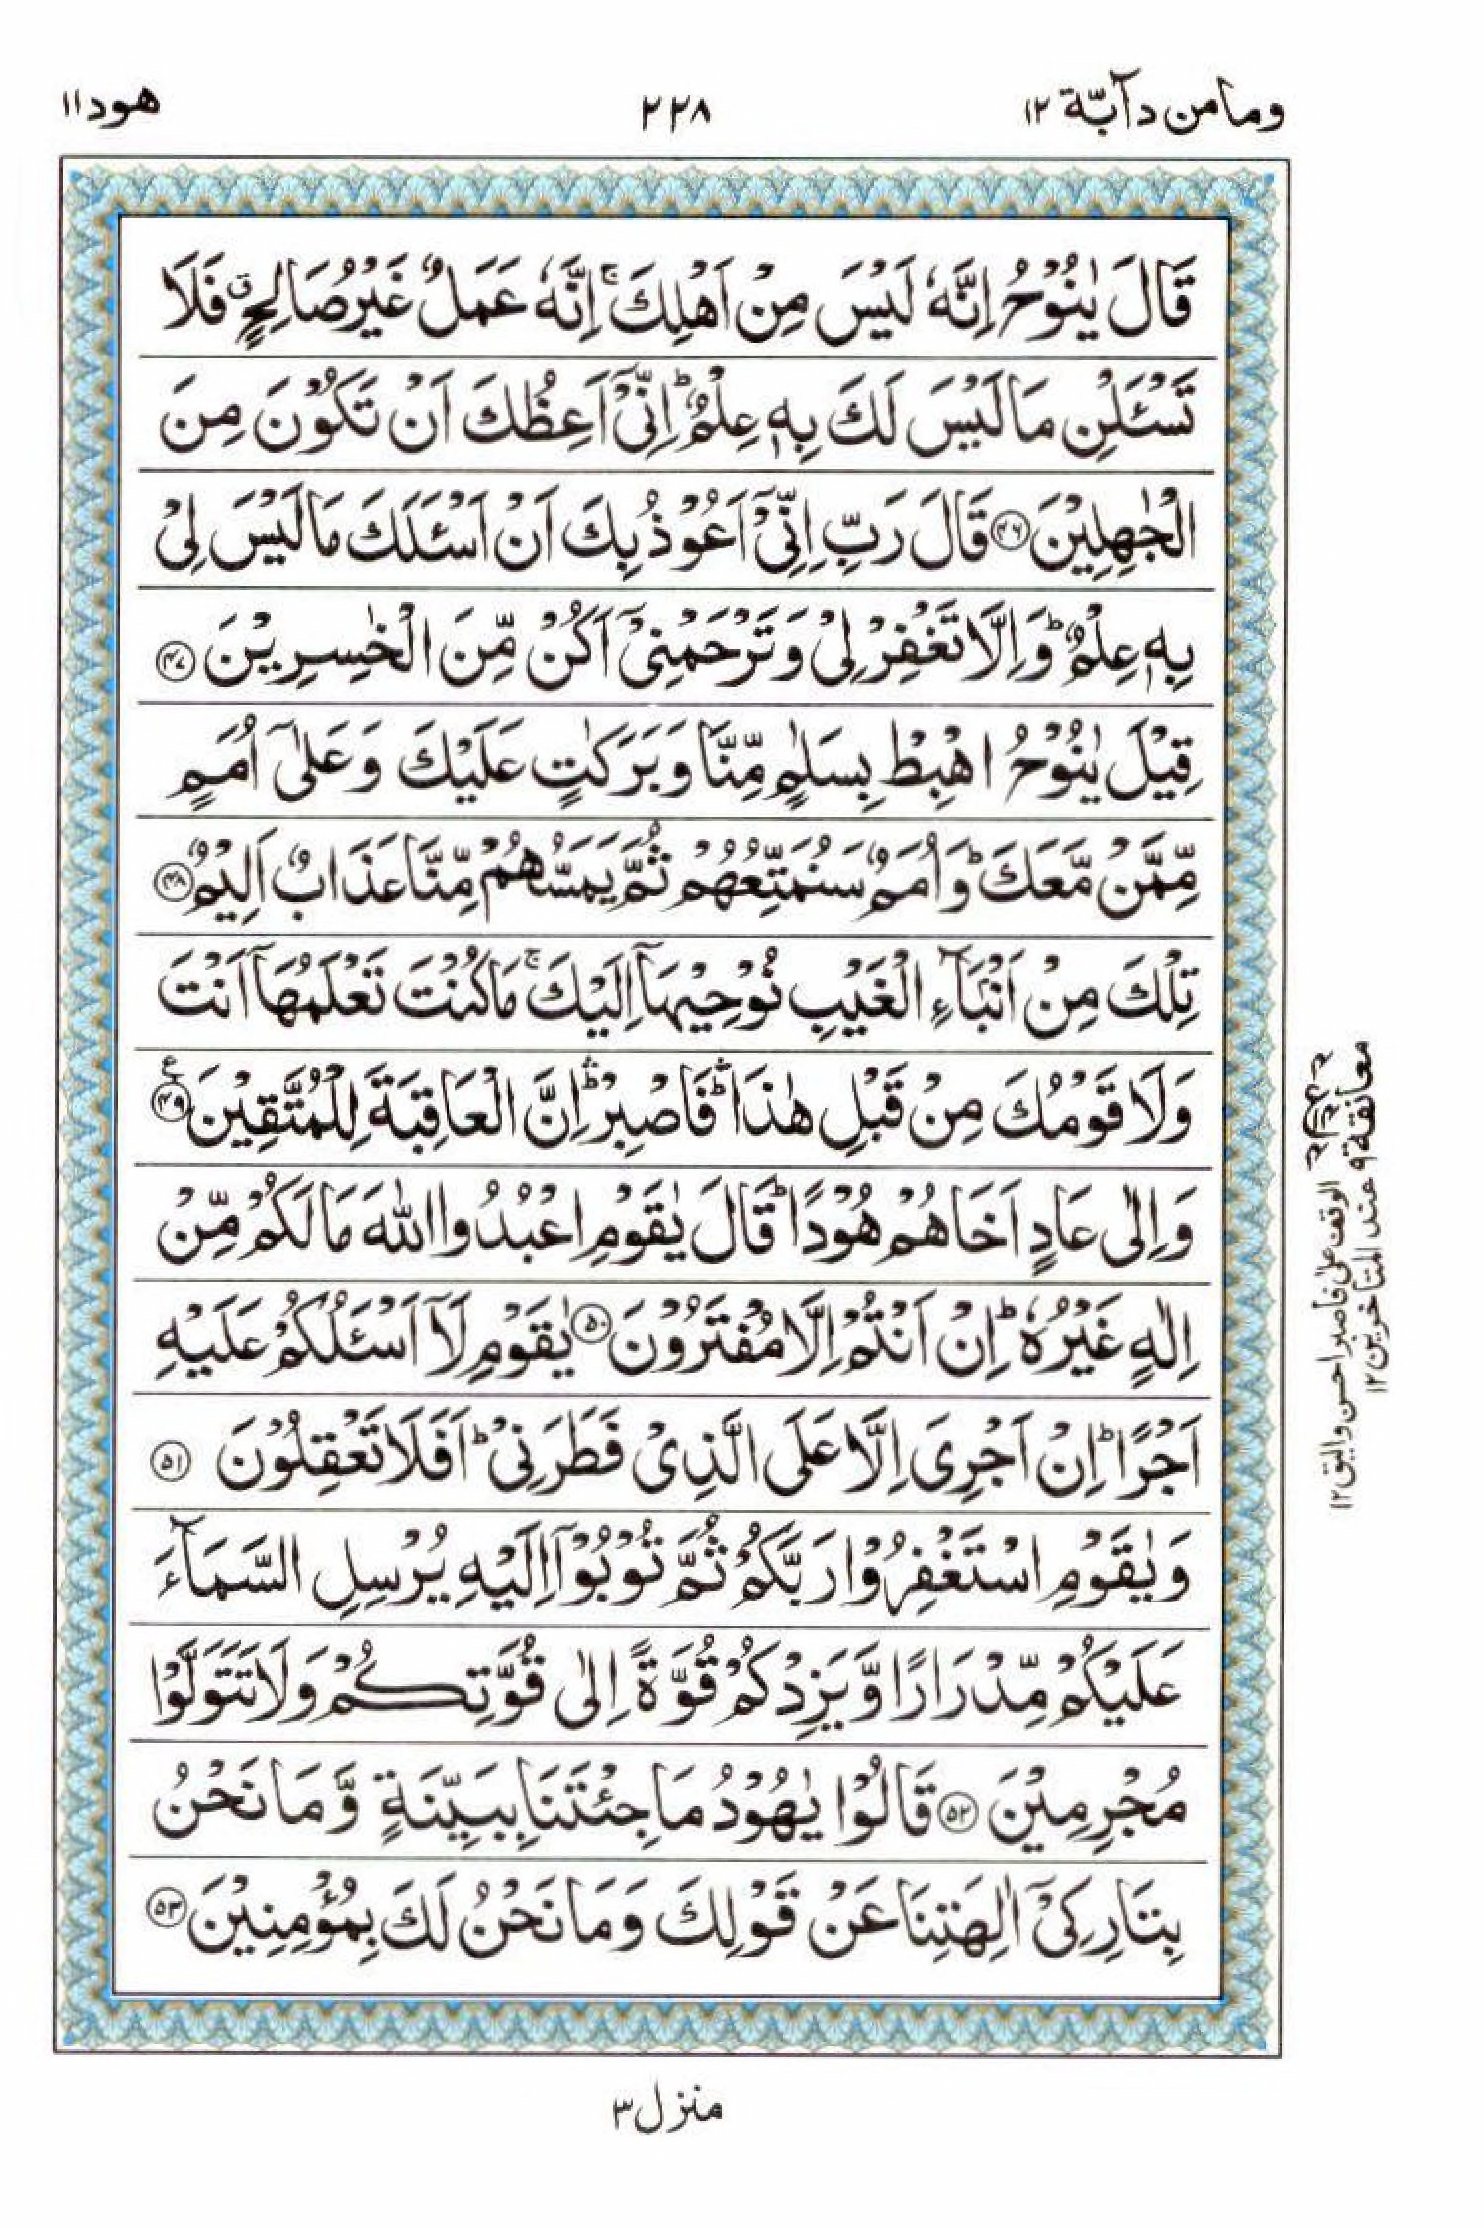 وما من دآبّة ١٢
٢٢٨
هود ١١
قَالَ يٰنُوْحُ اِنَّهٗ لَيْسَ مِنْ اَهْلِكَ ۚ اِنَّهٗ عَمَلٌ غَيْرُ صَالِحٍ ۖ فَلَا
تَسْـَٔلْنِ مَا لَيْسَ لَكَ بِهٖ عِلْمٌ ؕ اِنِّيْۤ اَعِظُكَ اَنْ تَكُوْنَ مِنَ
الْجٰهِلِيْنَ ﴿۴۶﴾ قَالَ رَبِّ اِنِّيْۤ اَعُوْذُ بِكَ اَنْ اَسْـَٔلَكَ مَا لَيْسَ لِيْ
بِهٖ عِلْمٌ ؕ وَاِلَّا تَغْفِرْ لِيْ وَتَرْحَمْنِيْۤ اَكُنْ مِّنَ الْخٰسِرِيْنَ ﴿۴۷﴾
قِيْلَ يٰنُوْحُ اهْبِطْ بِسَلٰمٍ مِّنَّا وَبَرَكٰتٍ عَلَيْكَ وَعَلٰۤى اُمَمٍ
مِّمَّنْ مَّعَكَ ؕ وَاُمَمٌ سَنُمَتِّعُهُمْ ثُمَّ يَمَسُّهُمْ مِّنَّا عَذَابٌ اَلِيْمٌ ﴿۴۸﴾
تِلْكَ مِنْ اَنْۢبَآءِ الْغَيْبِ نُوْحِيْهَاۤ اِلَيْكَ ۚ مَا كُنْتَ تَعْلَمُهَاۤ اَنْتَ
وَلَا قَوْمُكَ مِنْ قَبْلِ هٰذَا ۛؕ فَاصْبِرْ ۛؕ اِنَّ الْعَاقِبَةَ لِلْمُتَّقِيْنَ ﴿۴۹﴾ ع
وَاِلٰى عَادٍ اَخَاهُمْ هُوْدًا ؕ قَالَ يٰقَوْمِ اعْبُدُوا اللّٰهَ مَا لَكُمْ مِّنْ
اِلٰهٍ غَيْرُهٗ ؕ اِنْ اَنْتُمْ اِلَّا مُفْتَرُوْنَ ﴿۵۰﴾ يٰقَوْمِ لَاۤ اَسْـَٔلُكُمْ عَلَيْهِ
اَجْرًا ؕ اِنْ اَجْرِيَ اِلَّا عَلَى الَّذِيْ فَطَرَنِيْ ؕ اَفَلَا تَعْقِلُوْنَ ﴿۵۱﴾
وَيٰقَوْمِ اسْتَغْفِرُوْا رَبَّكُمْ ثُمَّ تُوْبُوْۤا اِلَيْهِ يُرْسِلِ السَّمَآءَ
عَلَيْكُمْ مِّدْرَارًا وَّيَزِدْكُمْ قُوَّةً اِلٰى قُوَّتِكُمْ وَلَا تَتَوَلَّوْا
مُجْرِمِيْنَ ﴿۵۲﴾ قَالُوْا يٰهُوْدُ مَا جِئْتَنَا بِبَيِّنَةٍ وَّمَا نَحْنُ
بِتَارِكِيْۤ اٰلِهَتِنَا عَنْ قَوْلِكَ وَمَا نَحْنُ لَكَ بِمُؤْمِنِيْنَ ﴿۵۳﴾
معانقة ٩ عند المتأخرين ١٢
الوقف على فاصبر احسن واليق ١٢
منزل ٣